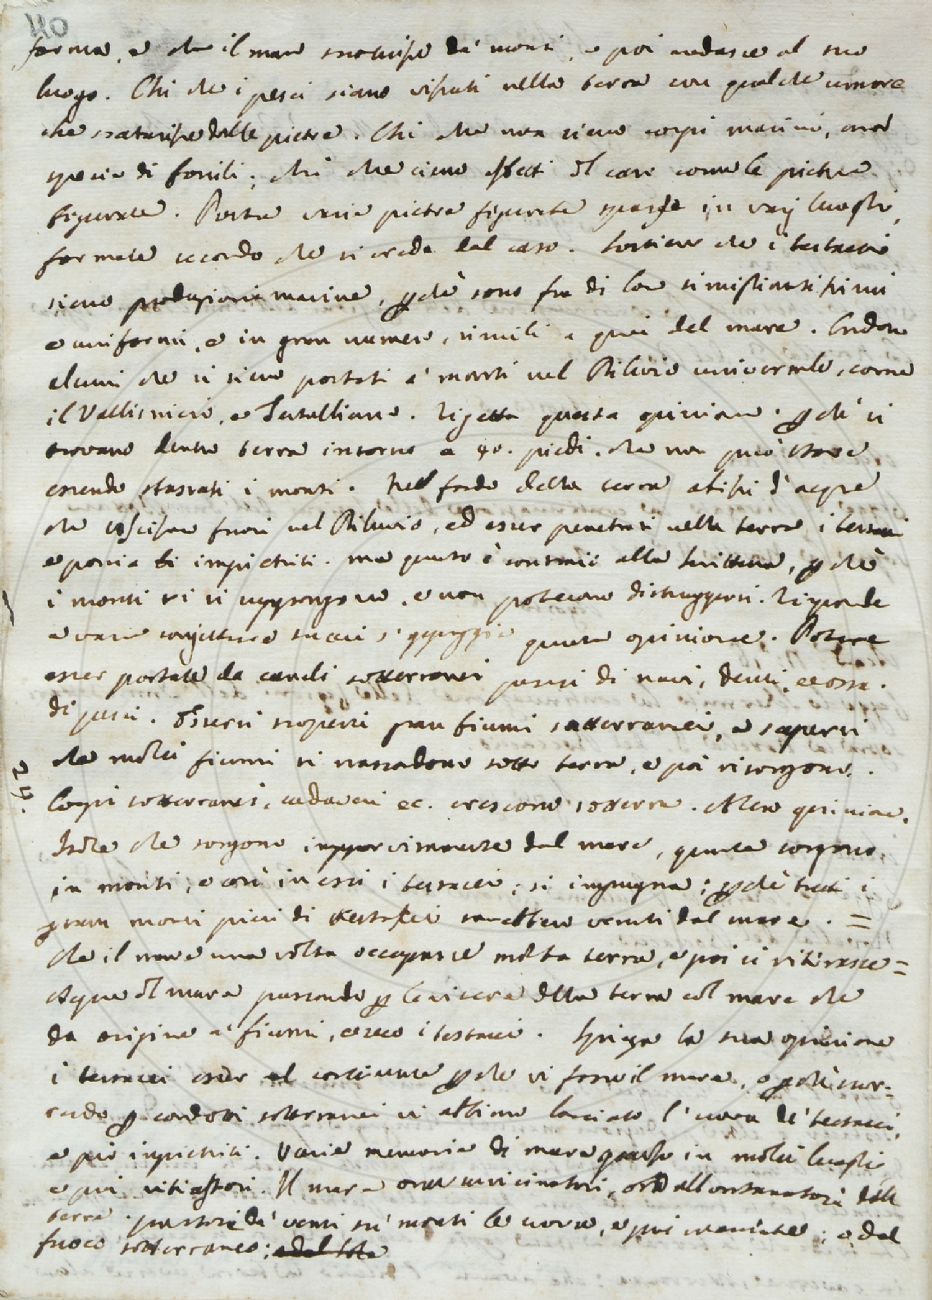 40
forma, e che il mare ricoprisse de' monti, e poi andasse al suo
luogo. Chi che i pesci siano vissuti nella terra con qualche umore
che scaturisse dalle pietre. Chi che non sieno corpi marini,
specie di fossili; chi che sieno effetti del caso come le pietre
figurate. Porta varie pietre figurate sparse in varj luoghi,
formate secondo che si crede dal caso. Sostiene che i testacei
sieno produzioni marine, perchè sono fra di loro simigliantissimi
e uniformi, e in gran numero, simili a quei del mare. Credono
alcuni che si sieno portati a' monti nel Diluvio universale, come
il Vallisnieri, e Tertulliano. Rigetta questa opinione. perchè si
trovano dentro terra intorno a 40. piedi. che non può essere,
essendo i monti. Nel fondo della terra abissi d'acque
che uscisse fuori nel Diluvio, ed esser penetrati nella terra i testacei
e poscia impietriti. ma questo è contrario alla Scrittura, perchè
i monti vi si suppongono, e non potevano distruggersi. Risponde
a varie congetture questa opinione. Potere
esser portate da canali sotterranei pezzi di navi, denti, e ossa
di pesci. Essersi scoperti gran fiumi sotterranei, e sapersi
che molti fiumi si nascondono sotto terra, e poi risorgono.
24.
Corpi sotterranei, cadaveri ec. crescono sotterra. Altra opinione.
Isole che sorgono improvvisamente dal mare, queste sorgono
in monti, e così in essi i testacei; si impugna; perchè tutti i
gran monti pieni di testacei sarebbero venuti dal mare. =
Che il mare una volta occupasse molta terra, e poi si ritirasse =
Acque del mare passando per le viscere della terra col mare che
da origine a' fiumi, e reco i testacei. Spiega la sua opinione
i testacei esser perchè vi fosse il mare, o perchè scor-
rendo per condotti sotterranei vi abbiano lasciato l'uova de' testacei,
e poi impietriti. Varie memorie di mare in molti luoghi
e poi ritiratosi. Il mare ora avvicinatosi, ora allontanatosi dalla
terra. portate da' venti su' monti le uova, e poi cresciute; o dal
fuoco sotterraneo;